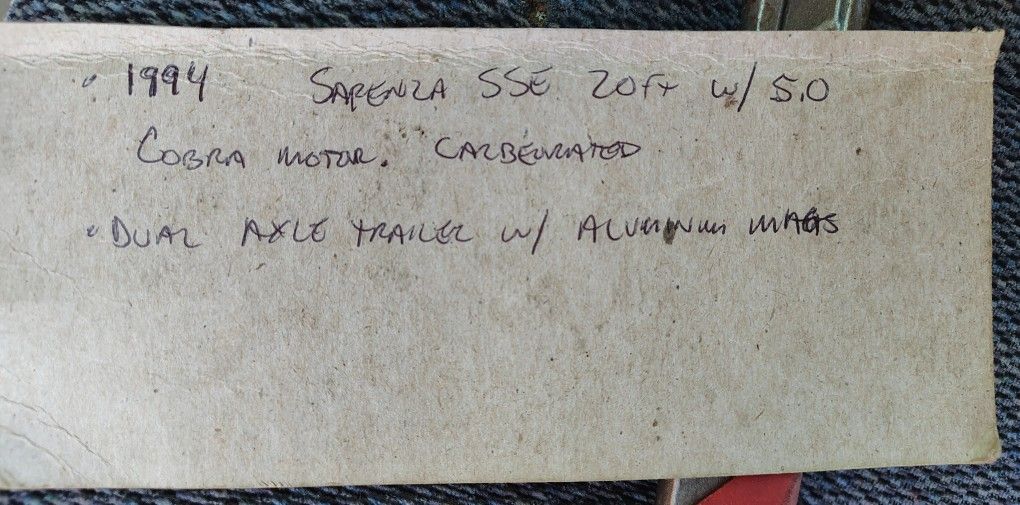 • 1994 SARENZA SSE 20ft w/ 5.0
COBRA MOTOR. CARBEURATED
• DUAL AXLE TRAILER w/ ALUMINUM MAGS